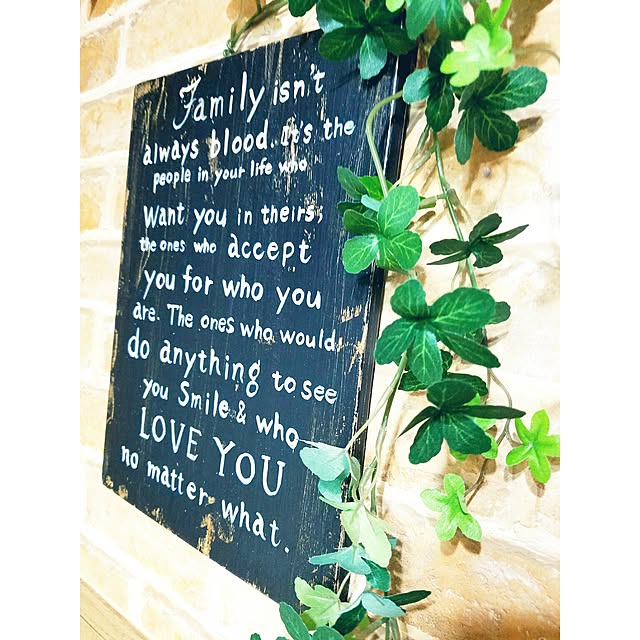 Family isn't
always blood. it's the
people in your life who
want you in theirs;
the ones who accept
you for who you
are. The ones who would
do anything to see
you Smile & who
LOVE YOU
no matter what.